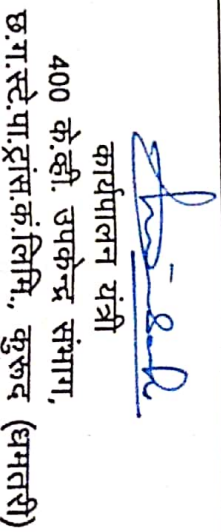 कार्यपालन यंत्री
400 के.व्ही. उपकेन्द्र संभाग,
छ.ग.स्टे.पा.ट्रांस.कं.लिमि., कुरूद (धमतरी)